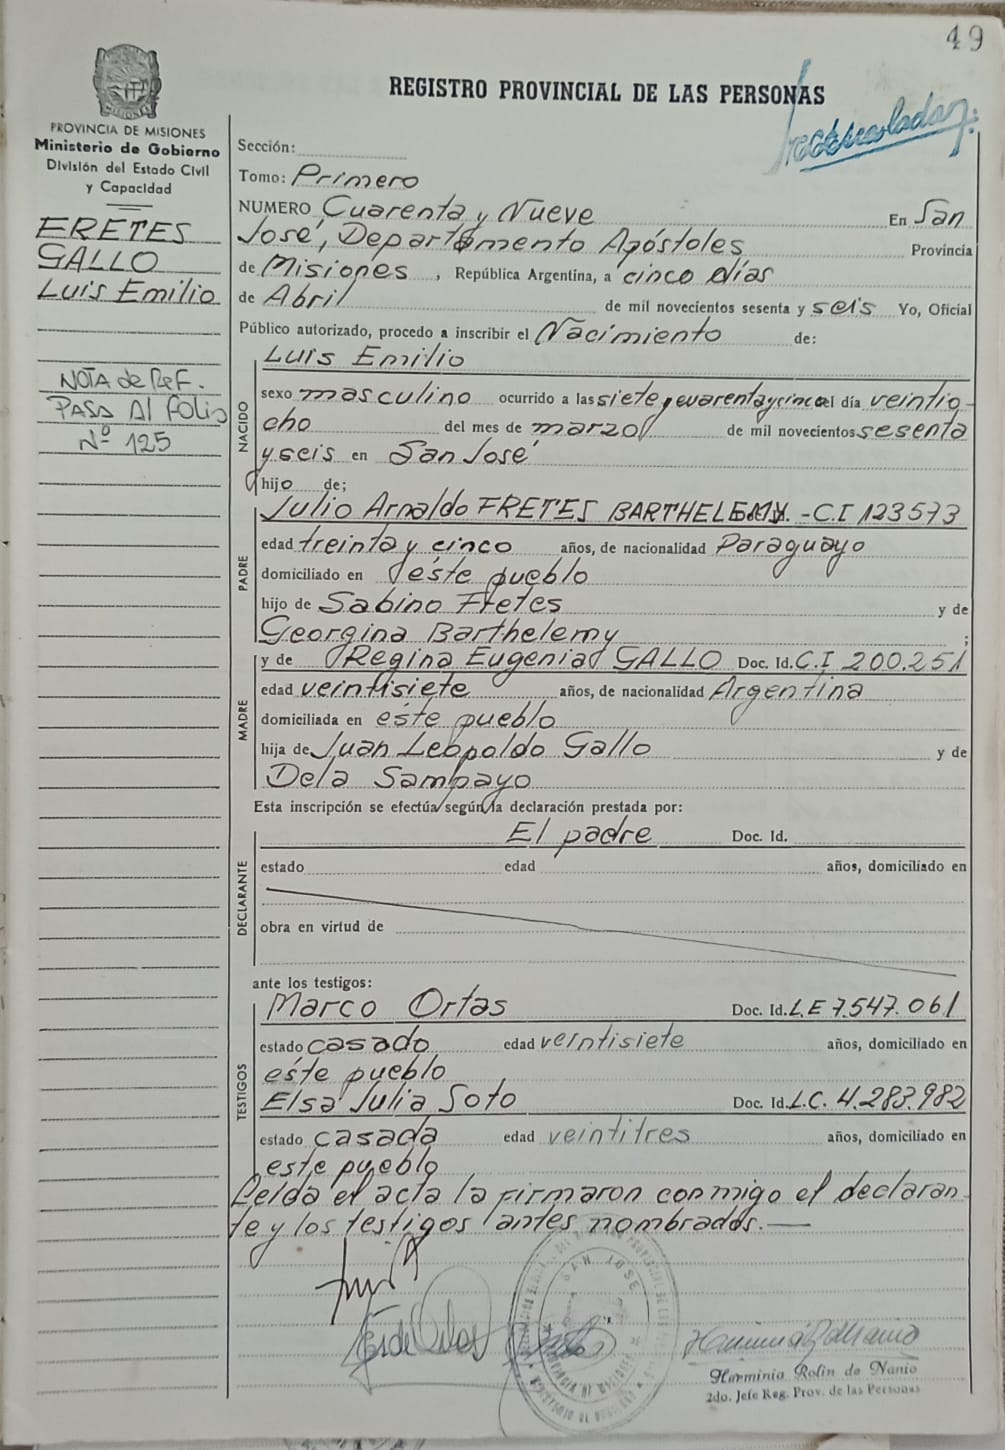 49
REGISTRO PROVINCIAL DE LAS PERSONAS
PROVINCIA DE MISIONES
Ministerio de Gobierno
División del Estado Civil
y Capacidad
FRETES
GALLO
Luis Emilio
NOTA de REF.
PASA Al folio
Nº 125
Sección:
Tomo: Primero
NUMERO Cuarenta y Nueve En San
José, Departamento Apóstoles Provincia
de Misiones, República Argentina, a cinco días
de Abril de mil novecientos sesenta y seis Yo, Oficial
Público autorizado, procedo a inscribir el Nacimiento de:
NACIDO
Luis Emilio
sexo masculino ocurrido a las siete y cuarenta y cinco el día veintio-
cho del mes de marzo de mil novecientos sesenta
y seis en San José
hijo de;
PADRE
Julio Arnaldo FRETES BARTHELEMY. - C.I 123573
edad treinta y cinco años, de nacionalidad Paraguayo
domiciliado en éste pueblo
hijo de Sabino Fretes y de
Georgina Barthelemy ;
MADRE
y de Regina Eugenia GALLO Doc. Id. C.I 200.251
edad veintisiete años, de nacionalidad Argentina
domiciliada en éste pueblo
hija de Juan Leopoldo Gallo y de
Dela Sampayo
Esta inscripción se efectúa según la declaración prestada por:
DECLARANTE
El padre Doc. Id.
estado edad años, domiciliado en
obra en virtud de
ante los testigos:
TESTIGOS
Marco Ortas Doc. Id. L.E 7.547.061
estado casado edad veintisiete años, domiciliado en
éste pueblo
Elsa Julia Soto Doc. Id. L.C. 4.283.982
estado casada edad veintitres años, domiciliado en
este pueblo
Leída el acta la firmaron conmigo el declaran-
te y los testigos antes nombrados.—
SAN JOSE
Herminia Rolin de Nanio
2do. Jefe Reg. Prov. de las Personas